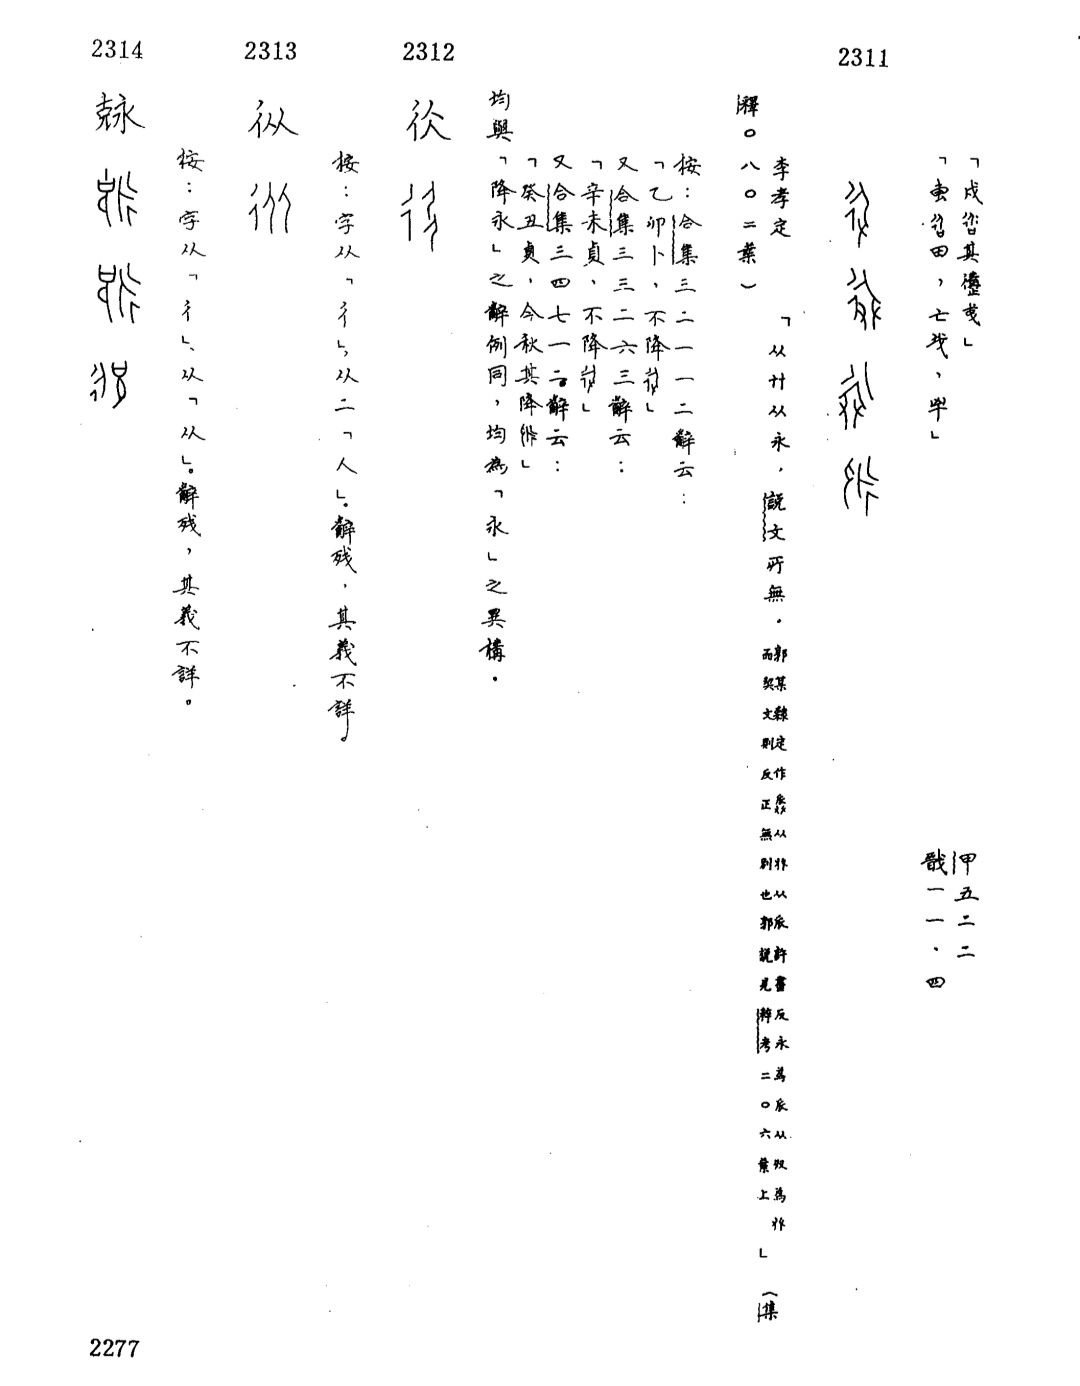 「戍𠱽其遲戋」 甲五二二
「叀𠱽田,亡𢦔,𢍏」 戩一一·四
2311
李孝定 「从廾从永,說文所無。郭某隸定作 从 从𠂢許書反永為𠂢从 為
而契文則反正無別也郭說見粹考二〇六葉上」 (集
釋〇八〇二葉)
按:合集三二一一二辭云:
「乙卯卜,不降 」
又合集三三二六三辭云:
「辛未貞,不降 」
又合集三四七一二辭云:
「癸丑貞,今秋其降 」
均與「降永」之辭例同,均為「永」之異構。
2312
2313
按:字从「彳」,从二「人」。辭殘,其義不詳。
2314
按:字从「彳」、从「从」。辭殘,其義不詳。
2277